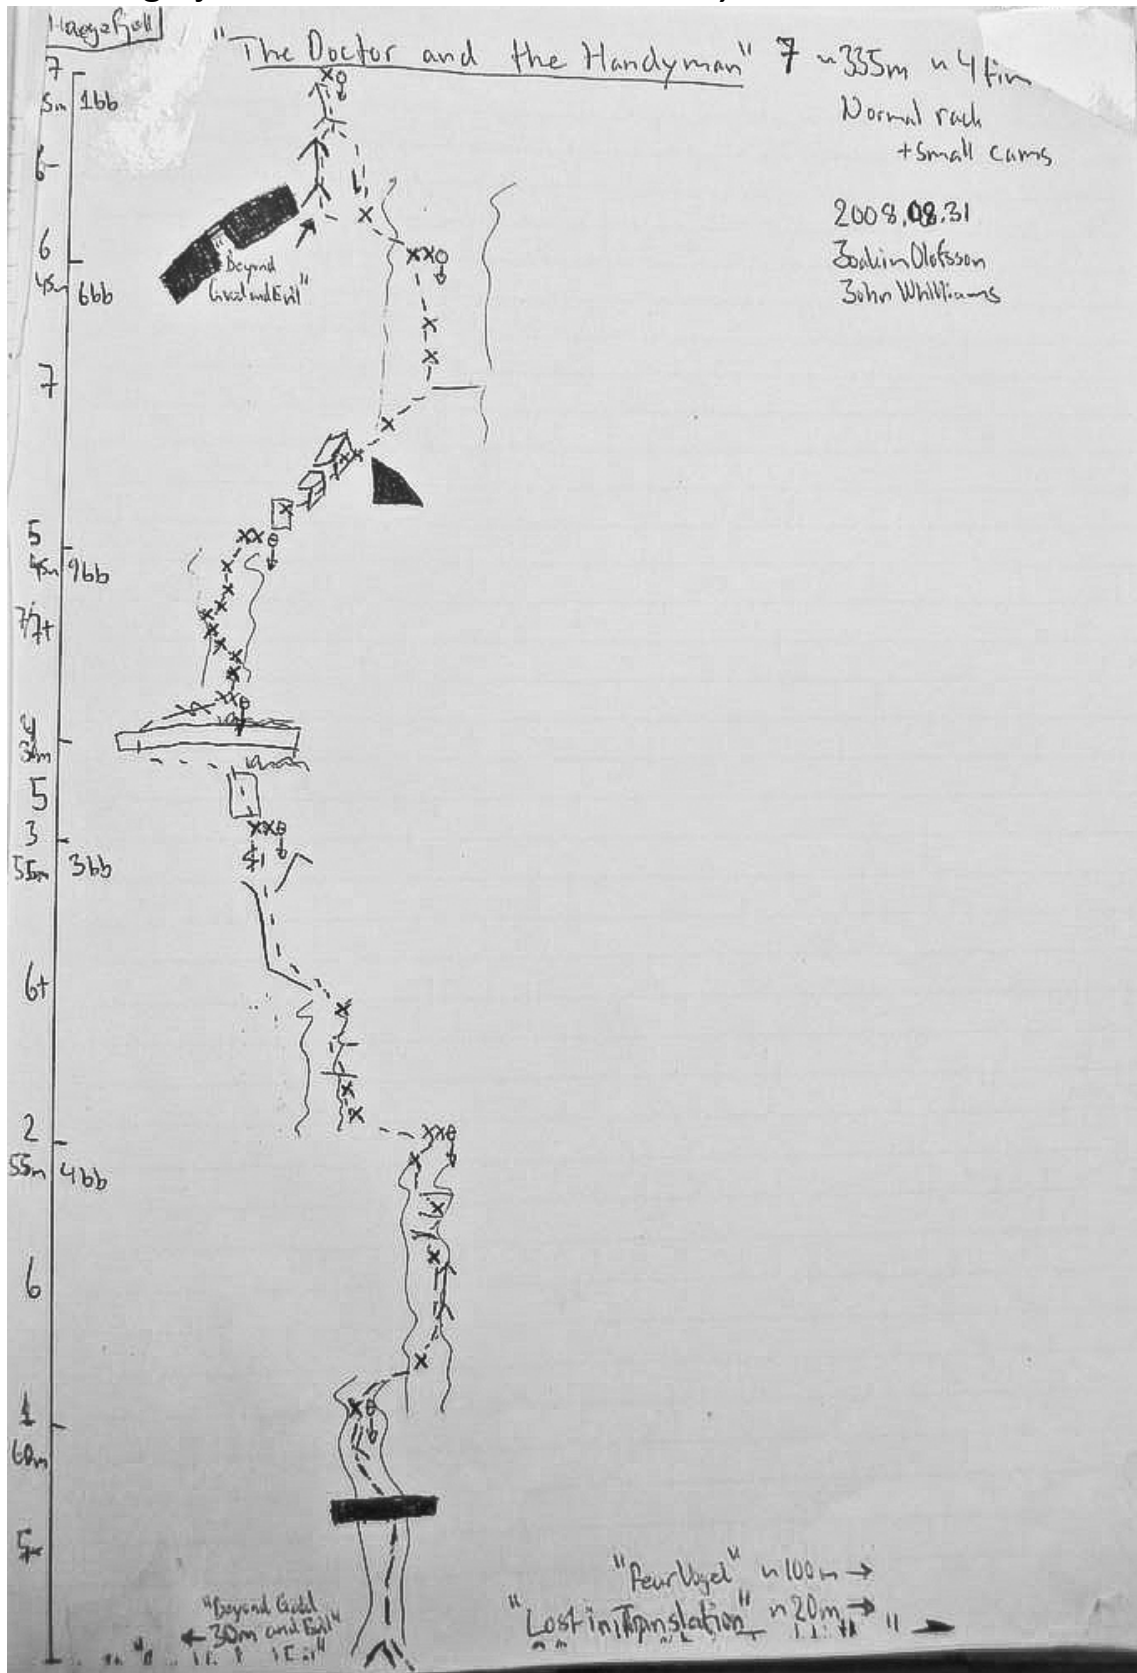 Haegefjell
"The Doctor and the Handyman" 7 ~335m ~4tim
Normal rack
+small cams
2008.08.31
Joakim Olofsson
John Whilliams
7
5m 1bb
6-
6
45m 6bb
"Beyond
Good and Evil"
7
5
45m 9bb
7/7+
4
30m
5
3
55m 3bb
6+
2
55m 4bb
6
1
60m
5-
"Feur Vogel" ~100m →
"Lost in Translation" ~20m →
"Beyond Good
← 30m and Evil"